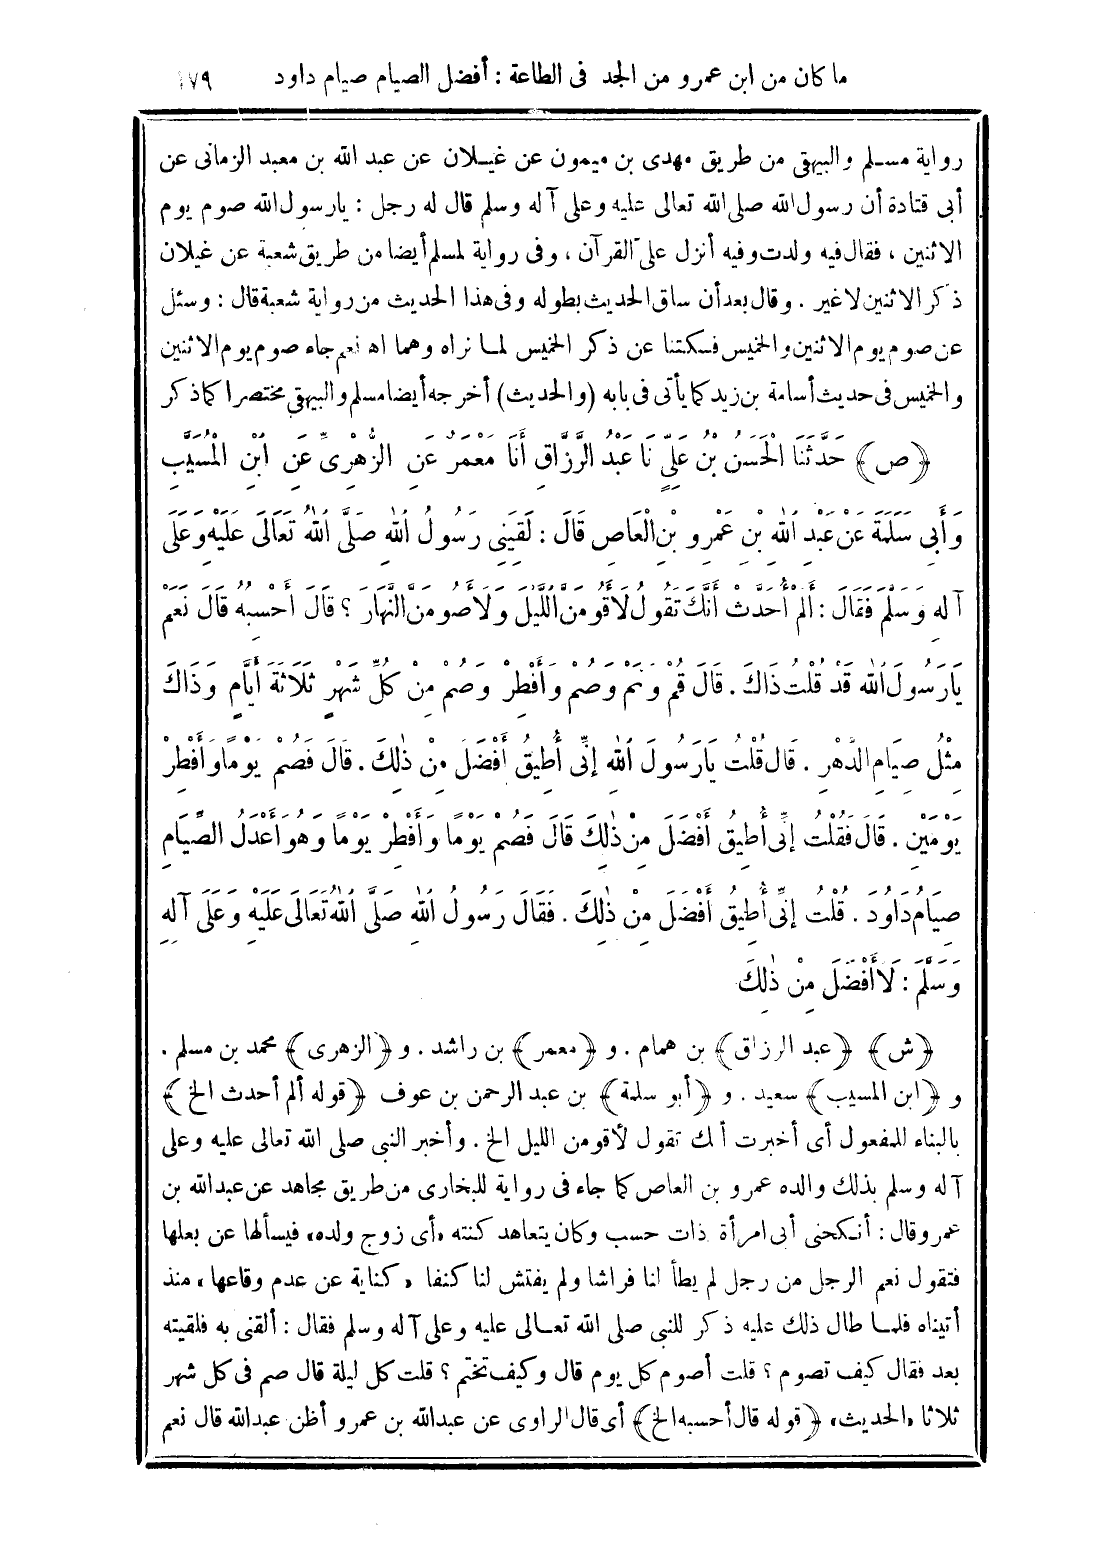 ما كان من ابن عمرو من الجد فى الطاعة : أفضل الصيام صيام داود ١٧٩
رواية مسلم والبيهقى من طريق مهدى بن ميمون عن غيلان عن عبد الله بن معبد الزمانى عن
أبى قتادة أن رسول الله صلى الله تعالى عليه وعلى آله وسلم قال له رجل : يارسول الله صوم يوم
الاثنين ، فقال فيه ولدت وفيه أنزل علىّ القرآن ، وفى رواية لمسلم أيضا من طريق شعبة عن غيلان
ذكر الاثنين لاغير . وقال بعد أن ساق الحديث بطوله وفى هذا الحديث من رواية شعبة قال : وسئل
عن صوم يوم الاثنين والخميس فسكتنا عن ذكر الخميس لما نراه وهما اه نعم جاء صوم يوم الاثنين
والخميس فى حديث أسامة بن زيد كما يأتى فى بابه (والحديث) أخرجه أيضا مسلم والبيهقى مختصرا كما ذكر
﴿ص﴾ حَدَّثَنَا الْحَسَنُ بْنُ عَلِيٍّ نَا عَبْدُ الرَّزَّاقِ أَنَا مَعْمَرٌ عَنِ الزُّهْرِىِّ عَنِ ابْنِ الْمُسَيَّبِ
وَأَبِى سَلَمَةَ عَنْ عَبْدِ اللهِ بْنِ عَمْرِو بْنِ الْعَاصِ قَالَ : لَقِيَنِى رَسُولُ اللهِ صَلَّى اللهُ تَعَالَى عَلَيْهِ وَعَلَى
آلِهِ وَسَلَّمَ فَقَالَ : أَلَمْ أُحَدَّثْ أَنَّكَ تَقُولُ لَأَقُومَنَّ اللَّيْلَ وَلَأَصُومَنَّ النَّهَارَ ؟ قَالَ أَحْسِبُهُ قَالَ نَعَمْ
يَارَسُولَ اللهِ قَدْ قُلْتُ ذَاكَ . قَالَ قُمْ وَنَمْ وَصُمْ وَأَفْطِرْ وَصُمْ مِنْ كُلِّ شَهْرٍ ثَلَاثَةَ أَيَّامٍ وَذَاكَ
مِثْلُ صِيَامِ الدَّهْرِ . قَالَ قُلْتُ يَارَسُولَ اللهِ إِنِّى أُطِيقُ أَفْضَلَ مِنْ ذٰلِكَ . قَالَ فَصُمْ يَوْمًا وَأَفْطِرْ
يَوْمَيْنِ . قَالَ فَقُلْتُ إِنِّى أُطِيقُ أَفْضَلَ مِنْ ذٰلِكَ قَالَ فَصُمْ يَوْمًا وَأَفْطِرْ يَوْمًا وَهُوَ أَعْدَلُ الصِّيَامِ
صِيَامُ دَاوُدَ . قُلْتُ إِنِّى أُطِيقُ أَفْضَلَ مِنْ ذٰلِكَ . فَقَالَ رَسُولُ اللهِ صَلَّى اللهُ تَعَالَى عَلَيْهِ وَعَلَى آلِهِ
وَسَلَّمَ : لَا أَفْضَلَ مِنْ ذٰلِكَ
﴿ش﴾ ﴿عبد الرزاق﴾ بن همام . و ﴿معمر﴾ بن راشد . و ﴿الزهرى﴾ محمد بن مسلم .
و ﴿ابن المسيب﴾ سعيد . و ﴿أبو سلمة﴾ بن عبد الرحمن بن عوف ﴿قوله ألم أحدث الخ﴾
بالبناء للمفعول أى أخبرت أنك تقول لأقومن الليل الخ . وأخبر النبى صلى الله تعالى عليه وعلى
آله وسلم بذلك والده عمرو بن العاص كما جاء فى رواية للبخارى من طريق مجاهد عن عبد الله بن
عمرو قال : أنكحنى أبى امرأة ذات حسب وكان يتعاهد كنته «أى زوج ولده» فيسألها عن بعلها
فتقول نعم الرجل من رجل لم يطأ لنا فراشا ولم يفتش لنا كنفا «كناية عن عدم وقاعها» منذ
أتيناه فلما طال ذلك عليه ذكر للنبى صلى الله تعالى عليه وعلى آله وسلم فقال : ألقنى به فلقيته
بعد فقال كيف تصوم ؟ قلت أصوم كل يوم قال وكيف تختم ؟ قلت كل ليلة قال صم فى كل شهر
ثلاثا «الحديث» ﴿قوله قال أحسبه الخ﴾ أى قال الراوى عن عبد الله بن عمرو أظن عبد الله قال نعم